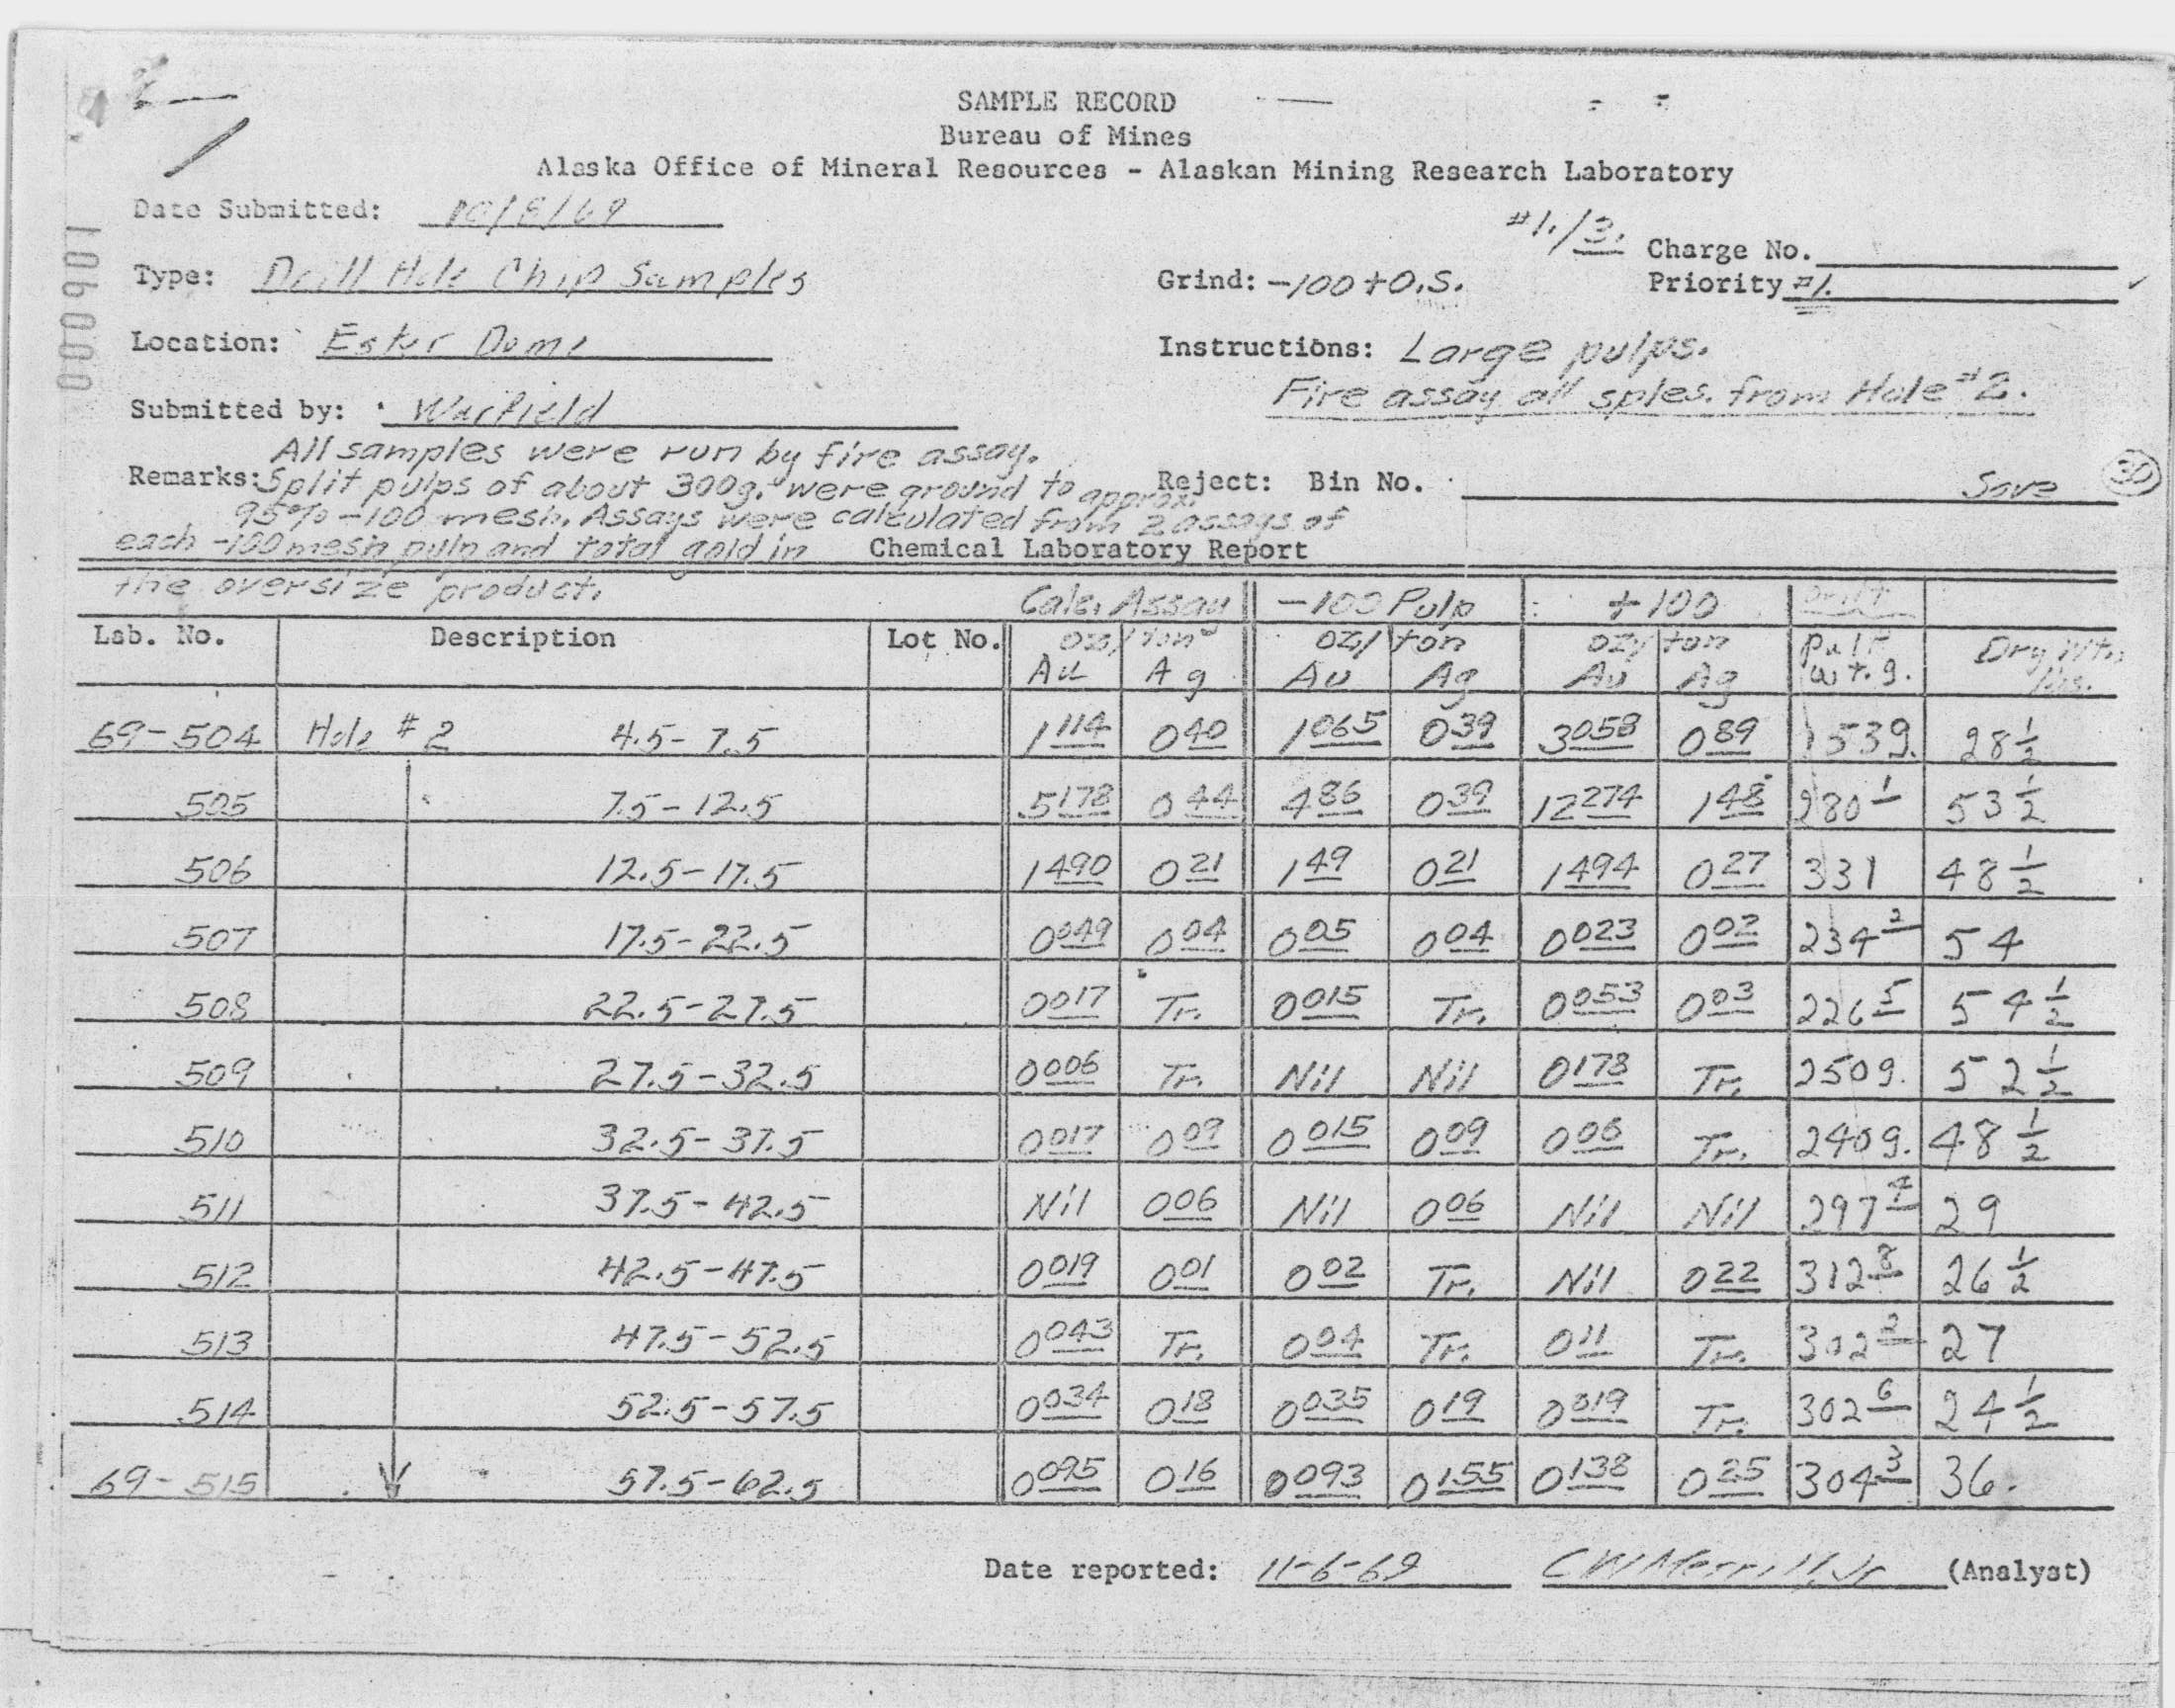 SAMPLE RECORD
Bureau of Mines
Alaska Office of Mineral Resources - Alaskan Mining Research Laboratory
Date Submitted: 10/8/69
#1./3. Charge No.
Type: Drill Hole Chip Samples Grind: -100 + O.S. Priority #1.
Location: Ester Dome Instructions: Large pulps.
Fire assay all sples. from Hole #2.
Submitted by: Warfield
All samples were run by fire assay.
Remarks: Split pulps of about 300g. were ground to approx.
Reject: Bin No. Save 30
95% -100 mesh. Assays were calculated from 2 assays of
each -100 mesh pulp and total gold in Chemical Laboratory Report
the oversize product.
Calc. Assay -100 Pulp +100
Lab. No. Description Lot No. oz/ton oz/ton oz/ton Pulp Dry Wt.
Au Ag Au Ag Au Ag wt. g. lbs.
69-504 Hole #2 4.5-7.5 1 114 0 40 1 065 0 39 3 058 0 89 539. 28 1/2
505 7.5-12.5 5 178 0 44 4 86 0 39 12 274 1 48 280 1 53 1/2
506 12.5-17.5 1 490 0 21 1 49 0 21 1 494 0 27 331 48 1/2
507 17.5-22.5 0 049 0 04 0 05 0 04 0 023 0 02 234 2 54
508 22.5-27.5 0 017 Tr. 0 015 Tr. 0 053 0 03 226 5 54 1/2
509 27.5-32.5 0 006 Tr. Nil Nil 0 178 Tr. 250g. 52 1/2
510 32.5-37.5 0 017 0 09 0 015 0 09 0 06 Tr. 240g. 48 1/2
511 37.5-42.5 Nil 0 06 Nil 0 06 Nil Nil 297 4 29
512 42.5-47.5 0 019 0 01 0 02 Tr. Nil 0 22 312 8 26 1/2
513 47.5-52.5 0 043 Tr. 0 04 Tr. 0 11 Tr. 302 2 27
514 52.5-57.5 0 034 0 18 0 035 0 19 0 019 Tr. 302 6 24 1/2
69-515 57.5-62.5 0 095 0 16 0 093 0 155 0 138 0 25 304 3 36.
Date reported: 11-6-69 CW Merrill, Jr (Analyst)